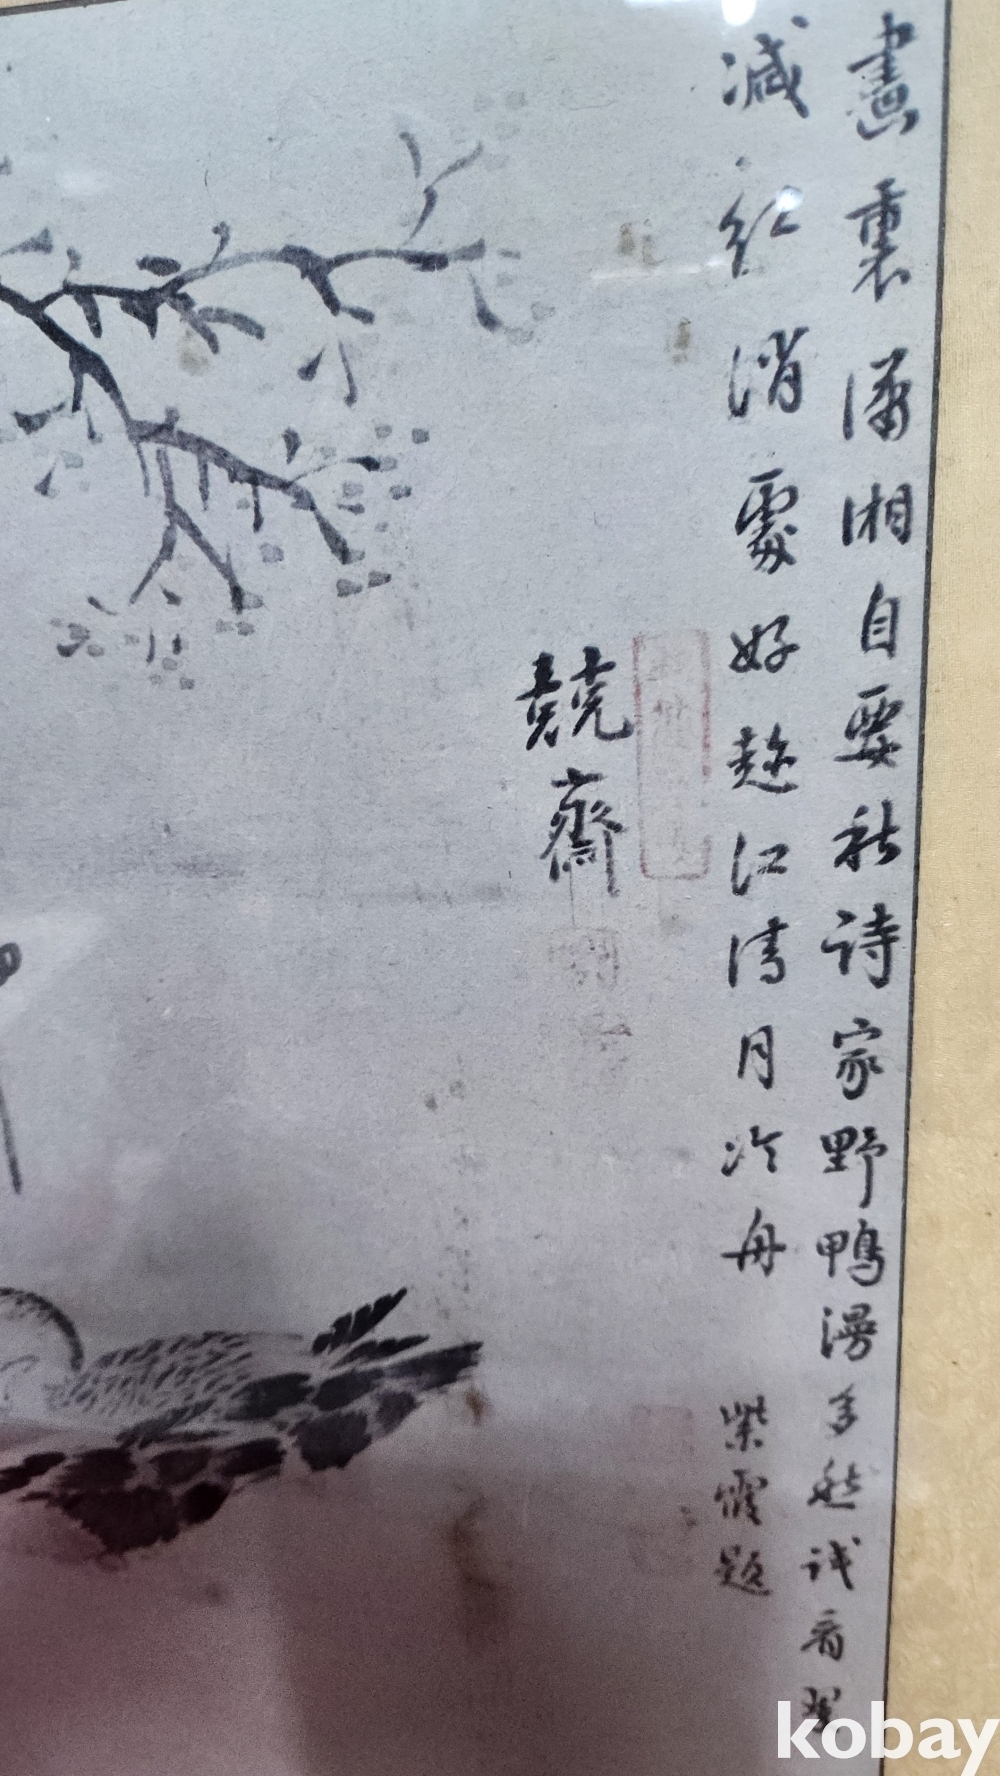 畵裏瀟湘自要秋詩家野鴨漫多愁試看
減紅消處好趂江清月冷舟
紫霞題
兢齋
kobay